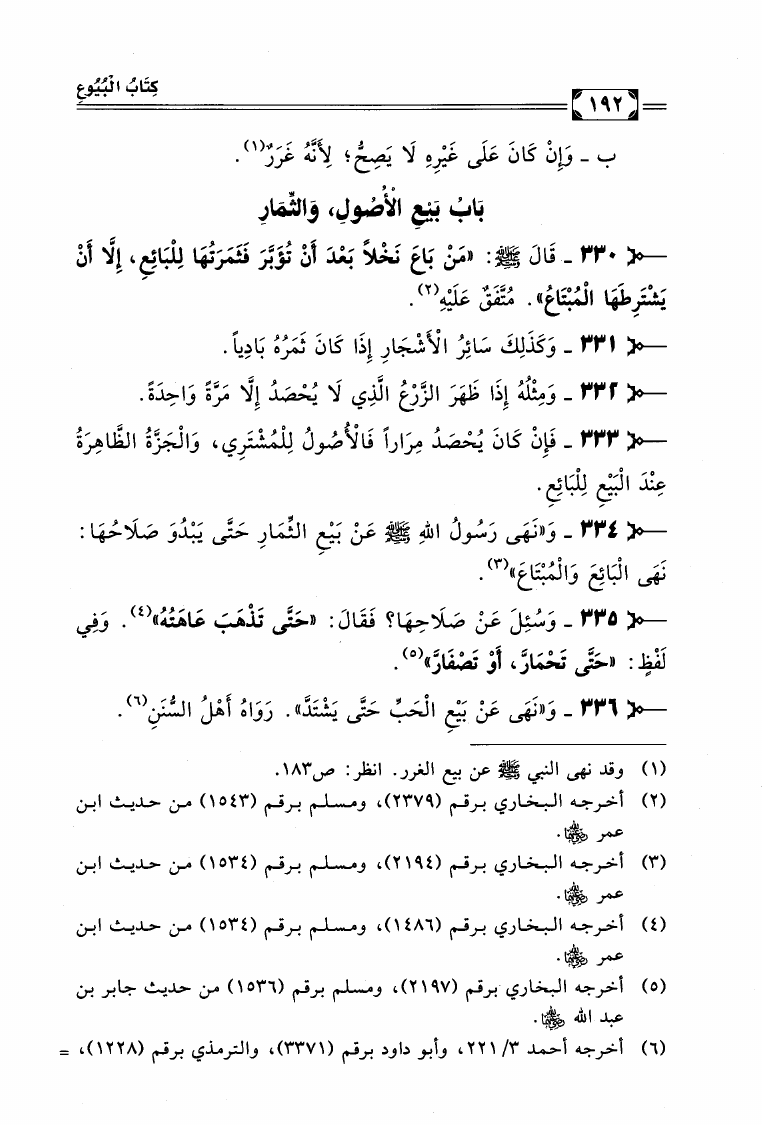 كِتَابُ الْبُيُوعِ
١٩٢
ب ـ وَإِنْ كَانَ عَلَى غَيْرِهِ لَا يَصِحُّ؛ لِأَنَّهُ غَرَرٌ(١).
بَابُ بَيْعِ الْأُصُولِ، وَالثِّمَارِ
٣٣٠ ـ قَالَ ﷺ: «مَنْ بَاعَ نَخْلاً بَعْدَ أَنْ تُؤَبَّرَ فَثَمَرَتُهَا لِلْبَائِعِ، إِلَّا أَنْ
يَشْتَرِطَهَا الْمُبْتَاعُ». مُتَّفَقٌ عَلَيْهِ(٢).
٣٣١ ـ وَكَذَلِكَ سَائِرُ الْأَشْجَارِ إِذَا كَانَ ثَمَرُهُ بَادِياً.
٣٣٢ ـ وَمِثْلُهُ إِذَا ظَهَرَ الزَّرْعُ الَّذِي لَا يُحْصَدُ إِلَّا مَرَّةً وَاحِدَةً.
٣٣٣ ـ فَإِنْ كَانَ يُحْصَدُ مِرَاراً فَالْأُصُولُ لِلْمُشْتَرِي، وَالْجَزَّةُ الظَّاهِرَةُ
عِنْدَ الْبَيْعِ لِلْبَائِعِ.
٣٣٤ ـ وَ«نَهَى رَسُولُ اللهِ ﷺ عَنْ بَيْعِ الثِّمَارِ حَتَّى يَبْدُوَ صَلَاحُهَا:
نَهَى الْبَائِعَ وَالْمُبْتَاعَ»(٣).
٣٣٥ ـ وَسُئِلَ عَنْ صَلَاحِهَا؟ فَقَالَ: «حَتَّى تَذْهَبَ عَاهَتُهُ»(٤). وَفِي
لَفْظٍ: «حَتَّى تَحْمَارَّ، أَوْ تَصْفَارَّ»(٥).
٣٣٦ ـ وَ«نَهَى عَنْ بَيْعِ الْحَبِّ حَتَّى يَشْتَدَّ». رَوَاهُ أَهْلُ السُّنَنِ(٦).
(١) وقد نهى النبي ﷺ عن بيع الغرر. انظر: ص١٨٣.
(٢) أخرجه البخاري برقم (٢٣٧٩)، ومسلم برقم (١٥٤٣) من حديث ابن
عمر رضي الله عنهما.
(٣) أخرجه البخاري برقم (٢١٩٤)، ومسلم برقم (١٥٣٤) من حديث ابن
عمر رضي الله عنهما.
(٤) أخرجه البخاري برقم (١٤٨٦)، ومسلم برقم (١٥٣٤) من حديث ابن
عمر رضي الله عنهما.
(٥) أخرجه البخاري برقم (٢١٩٧)، ومسلم برقم (١٥٣٦) من حديث جابر بن
عبد الله رضي الله عنهما.
(٦) أخرجه أحمد ٣/ ٢٢١، وأبو داود برقم (٣٣٧١)، والترمذي برقم (١٢٢٨)، =